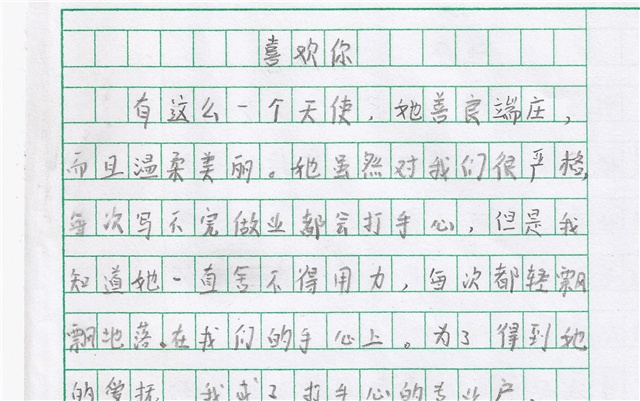 喜欢你
有这么一个天使，她善良端庄，
而且温柔美丽。她虽然对我们很严格，
每次写不完做业都会打手心，但是我
知道她一直舍不得用力，每次都轻飘
飘地落在我们的手心上。为了得到她
的爱抚，我成了打手心的专业户。